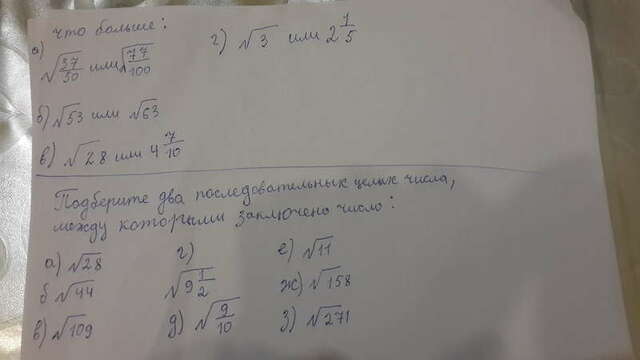 что больше:
а) √37/50 или √77/100
г) √3 или 2 1/5
б) √53 или √63
в) √28 или 4 7/10
Подберите два последовательных целых числа,
между которыми заключено число:
а) √28
г) √9 1/2
е) √11
б √44
ж) √158
в) √109
д) √9/10
з) √271